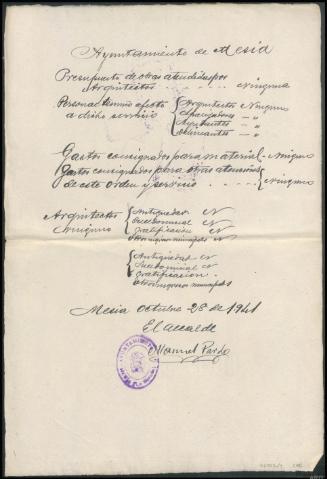 Ayuntamiento de Mesía
Presupuesto de obras atendidas por
Arquitectos . . . . . . . Ninguna
Personal técnico afecto { Arquitectos Ninguno
a dicho servicio { Aparejadores — "
Ayudantes — "
Delineantes — "
Gastos consignados para material - Ninguno
Gastos consignados para otras atenciones
de este orden y servicio { Ninguno
Arquitectos { Antigüedad N
Ninguno { Sueldo inicial N
Gratificación N
Otros ingresos municipales N
{ Antigüedad N
Sueldo inicial N
Gratificación
Otros ingresos municipales
Mesía Octubre 28 de 1941
El alcalde
Manuel Pardo